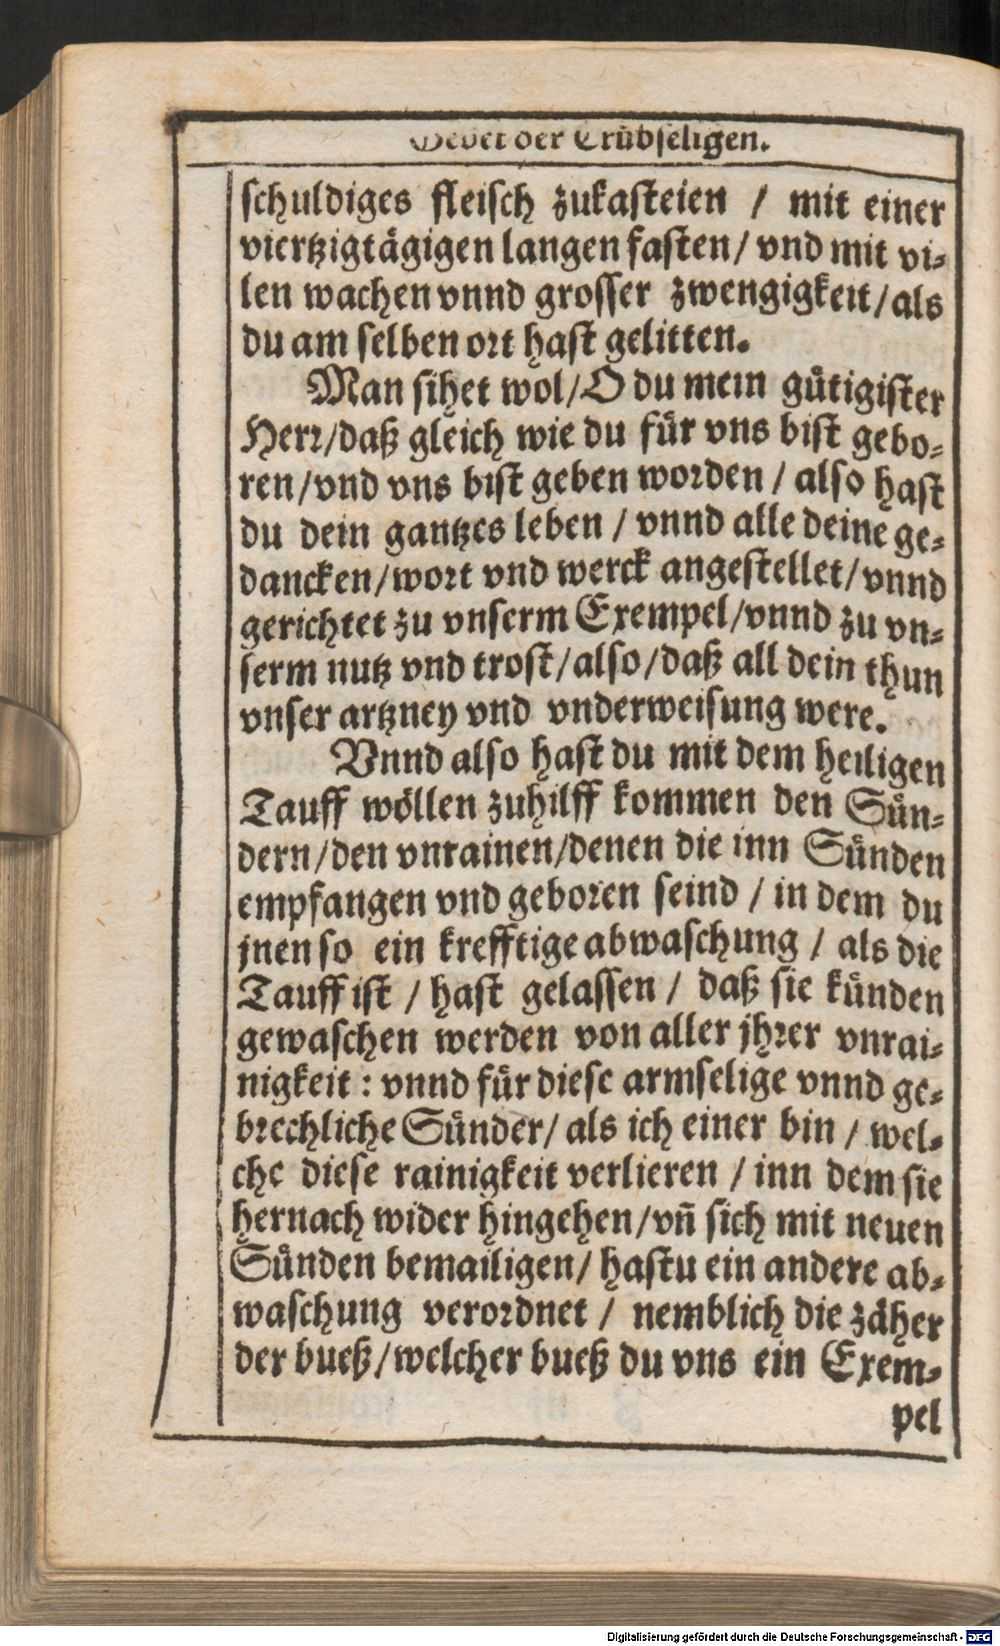 Gebet der Trübseligen.
schuldiges fleisch zukasteien / mit einer
viertzigtägigen langen fasten / vnd mit vi-
len wachen vnnd grosser zwengigkeit / als
du am selben ort hast gelitten.
Man sihet wol / O du mein gütigister
Herr / daß gleich wie du für vns bist gebo-
ren / vnd vns bist geben worden / also hast
du dein gantzes leben / vnnd alle deine ge-
dancken / wort vnd werck angestellet / vnnd
gerichtet zu vnserm Exempel / vnnd zu vn-
serm nutz vnd trost / also / daß all dein thun
vnser artzney vnd vnderweisung were.
Vnnd also hast du mit dem heiligen
Tauff wöllen zuhilff kommen den Sün-
dern / den vnrainen / denen die inn Sünden
empfangen vnd geboren seind / in dem du
jnen so ein krefftige abwaschung / als die
Tauff ist / hast gelassen / daß sie künden
gewaschen werden von aller jhrer vnrai-
nigkeit : vnnd für diese armselige vnnd ge-
brechliche Sünder / als ich einer bin / wel-
che diese rainigkeit verlieren / inn dem sie
hernach wider hingehen / vñ sich mit neuen
Sünden bemailigen / hastu ein andere ab-
waschung verordnet / nemblich die zäher
der bueß / welcher bueß du vns ein Exem-
pel
Digitalisierung gefördert durch die Deutsche Forschungsgemeinschaft - DFG